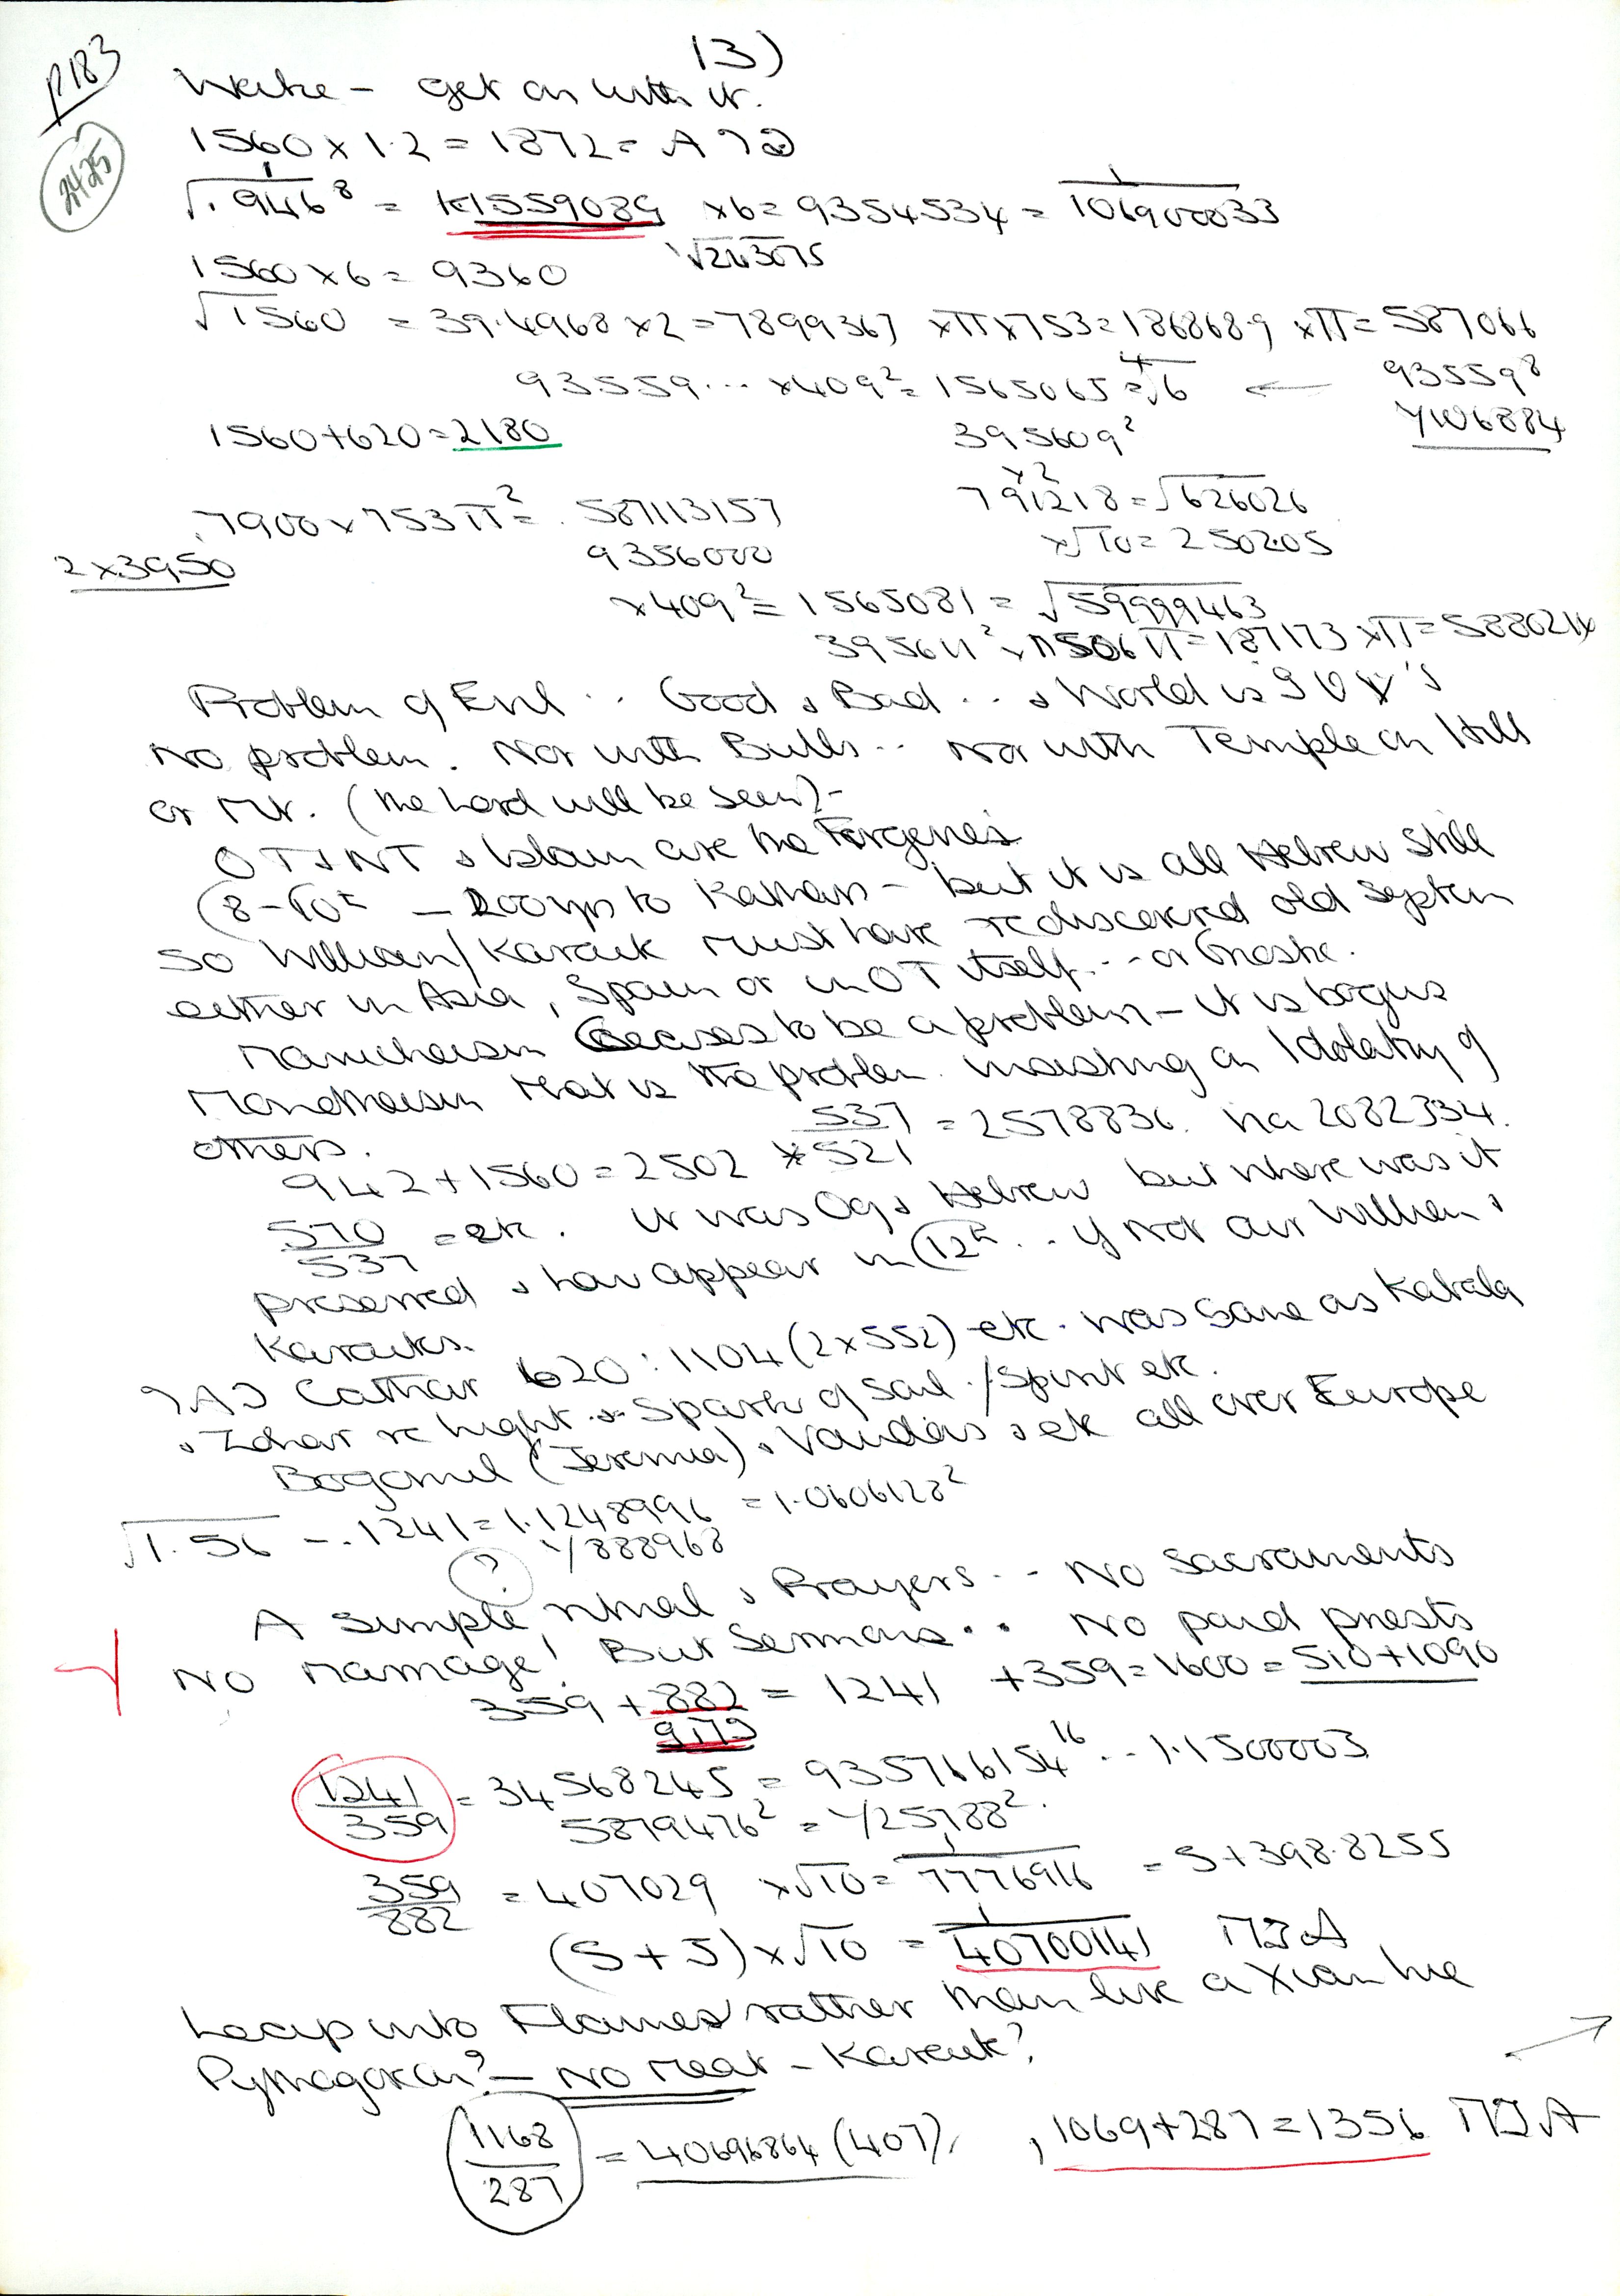 13)
P183
2425
Wake - get on with it.
1560 x 1.2 = 1872 =
√.946⁸ = 1559089 x6 = 9354534 = 1/106900033
1560 x 6 = 9360 √243075
√1560 = 39.4968 x2 = 7899367 xπ x753 = 186868.9 xπ = 587066
93559... x409² = 1565065 = ⁴√6 ← 93559⁸
1560+620 = 2180 395609² 1/106884
x2
791218 = √626026
7900 x 753π² = 587113157 x√10 = 250205
2x3950 9356000
x409² = 1565081 = √59999463
Problem of Evil .. Good & Bad ... & World is
No problem. Nor with Bulls .. Nor with Temple on Hill
or Mt. (the Lord will be seen) -
OT & NT & Islam are the Forgeries
200 yrs to Kathars - but it is all Hebrew still
So William/Karaite must have rediscovered old system
either in Asia, Spain or in OT itself... or Gnostic.
Manicheism Ceases to be a problem - it is bogus
Monotheism that is the problem. Insisting on Idolatry of
others.
942 + 1560 = 2502 537/521 = 2578836. via 2082334.
570/537 = etc. It was Og & Hebrew but where was it
preserved & how appear in 12th .. if not our William &
Karaites.
Cathar 620 : 1104 (2x552) etc. was same as Kabala
& Zohar re Light & Spark of Soul / Spirit etc.
Bogomil (Jeremia) & Vaudois & etc all over Europe
√1.56 - .1241 = 1.1248996 = 1.0606128²
? 1/888968
A simple ritual & Prayers .. No Sacraments
No Marriage! But Sermons .. No paid priests
359 + 882 = 1241 +359 = 1600 = 510+1090
1241/359 = 34568245 = 935716154¹⁶ .. 1.1500003
5879476² = 1/25788².
359/882 = 407029 x√10 = 1/7776916 = 5+398.8255
(5+5) x √10 = 1/40700141
Leap into Flames rather than live a Xian Lie
Pythagorean? - No Meat - Karaite?
1168/287 = 40696864 (407), 1069+287 = 1356